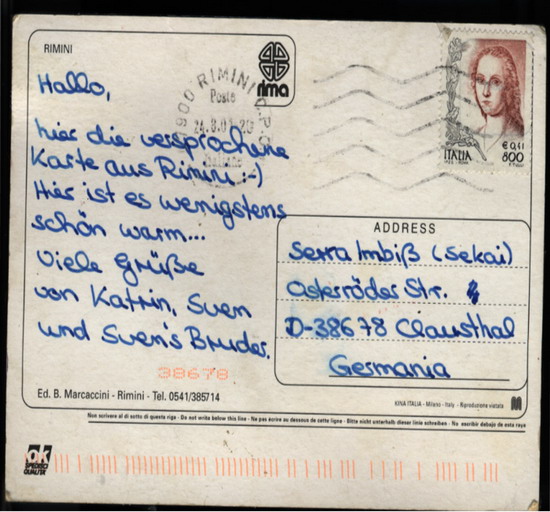 RIMINI
rima
RIMINI
Poste
ITALIA
€ 0,41
800
Hallo,
hier die versprochene
Karte aus Rimini :-)
Hier ist es wenigstens
schön warm...
Viele Grüße
von Katrin, Sven
und Sven's Bruder.
ADDRESS
Serra Imbiß (Sekai)
Osteröder Str.
D-38678 Clausthal
Germania
38678
Ed. B. Marcaccini - Rimini - Tel. 0541/385714
KINA ITALIA - Milano - Italy - Riproduzione vietata
Non scrivere al di sotto di questa riga - Do not write below this line - Ne pas écrire au dessous de cette ligne - Bitte nicht unterhalb dieser linie schreiben - No escribir debajo de esta raya
ok
SPECIFICO
QUALISTAT